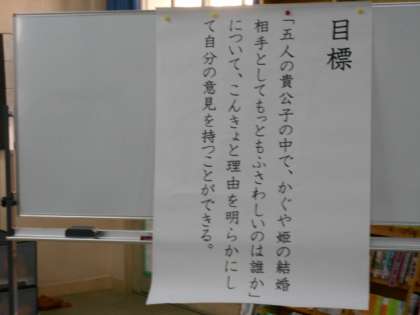 目標
「五人の貴公子の中で、かぐや姫の結婚
相手としてもっともふさわしいのは誰か」
について、こんきょと理由を明らかにし
て自分の意見を持つことができる。